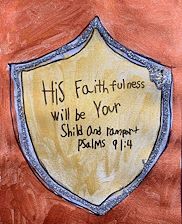 His Faithfulness
will be Your
Shild And rampart
Psalms 91:4